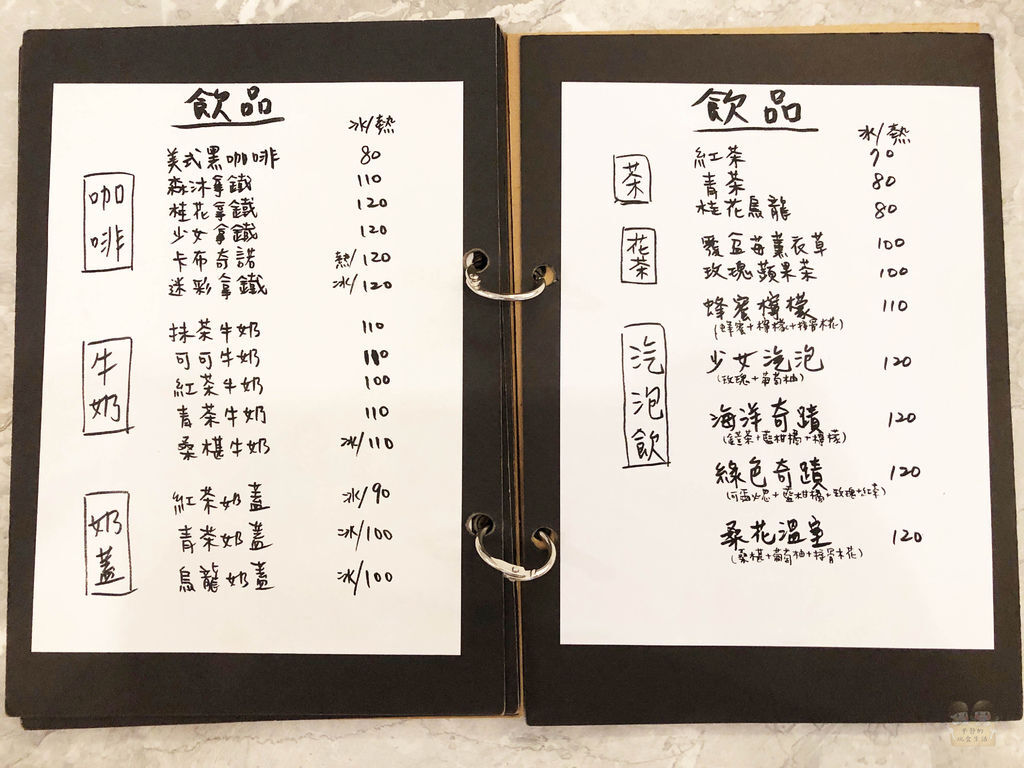 飲品
冰/熱
咖啡
美式黑咖啡 80
森沐拿鐵 110
桂花拿鐵 120
少女拿鐵 120
卡布奇諾 熱/120
迷彩拿鐵 冰/120
牛奶
抹茶牛奶 110
可可牛奶 110
紅茶牛奶 100
青茶牛奶 110
桑椹牛奶 冰/110
奶蓋
紅茶奶蓋 冰/90
青茶奶蓋 冰/100
烏龍奶蓋 冰/100
飲品
冰/熱
茶
紅茶 70
青茶 80
桂花烏龍 80
花茶
覆盆莓薰衣草 100
玫瑰蘋果茶 100
汽泡飲
蜂蜜檸檬 110
(蜂蜜+檸檬+接骨木花)
少女汽泡 120
(玫瑰+葡萄柚)
海洋奇蹟 120
藍柑橘+檸檬)
綠色奇蹟 120
藍柑橘+玫瑰+紅茶)
桑花溫室 120
(桑椹+葡萄柚+接骨木花)